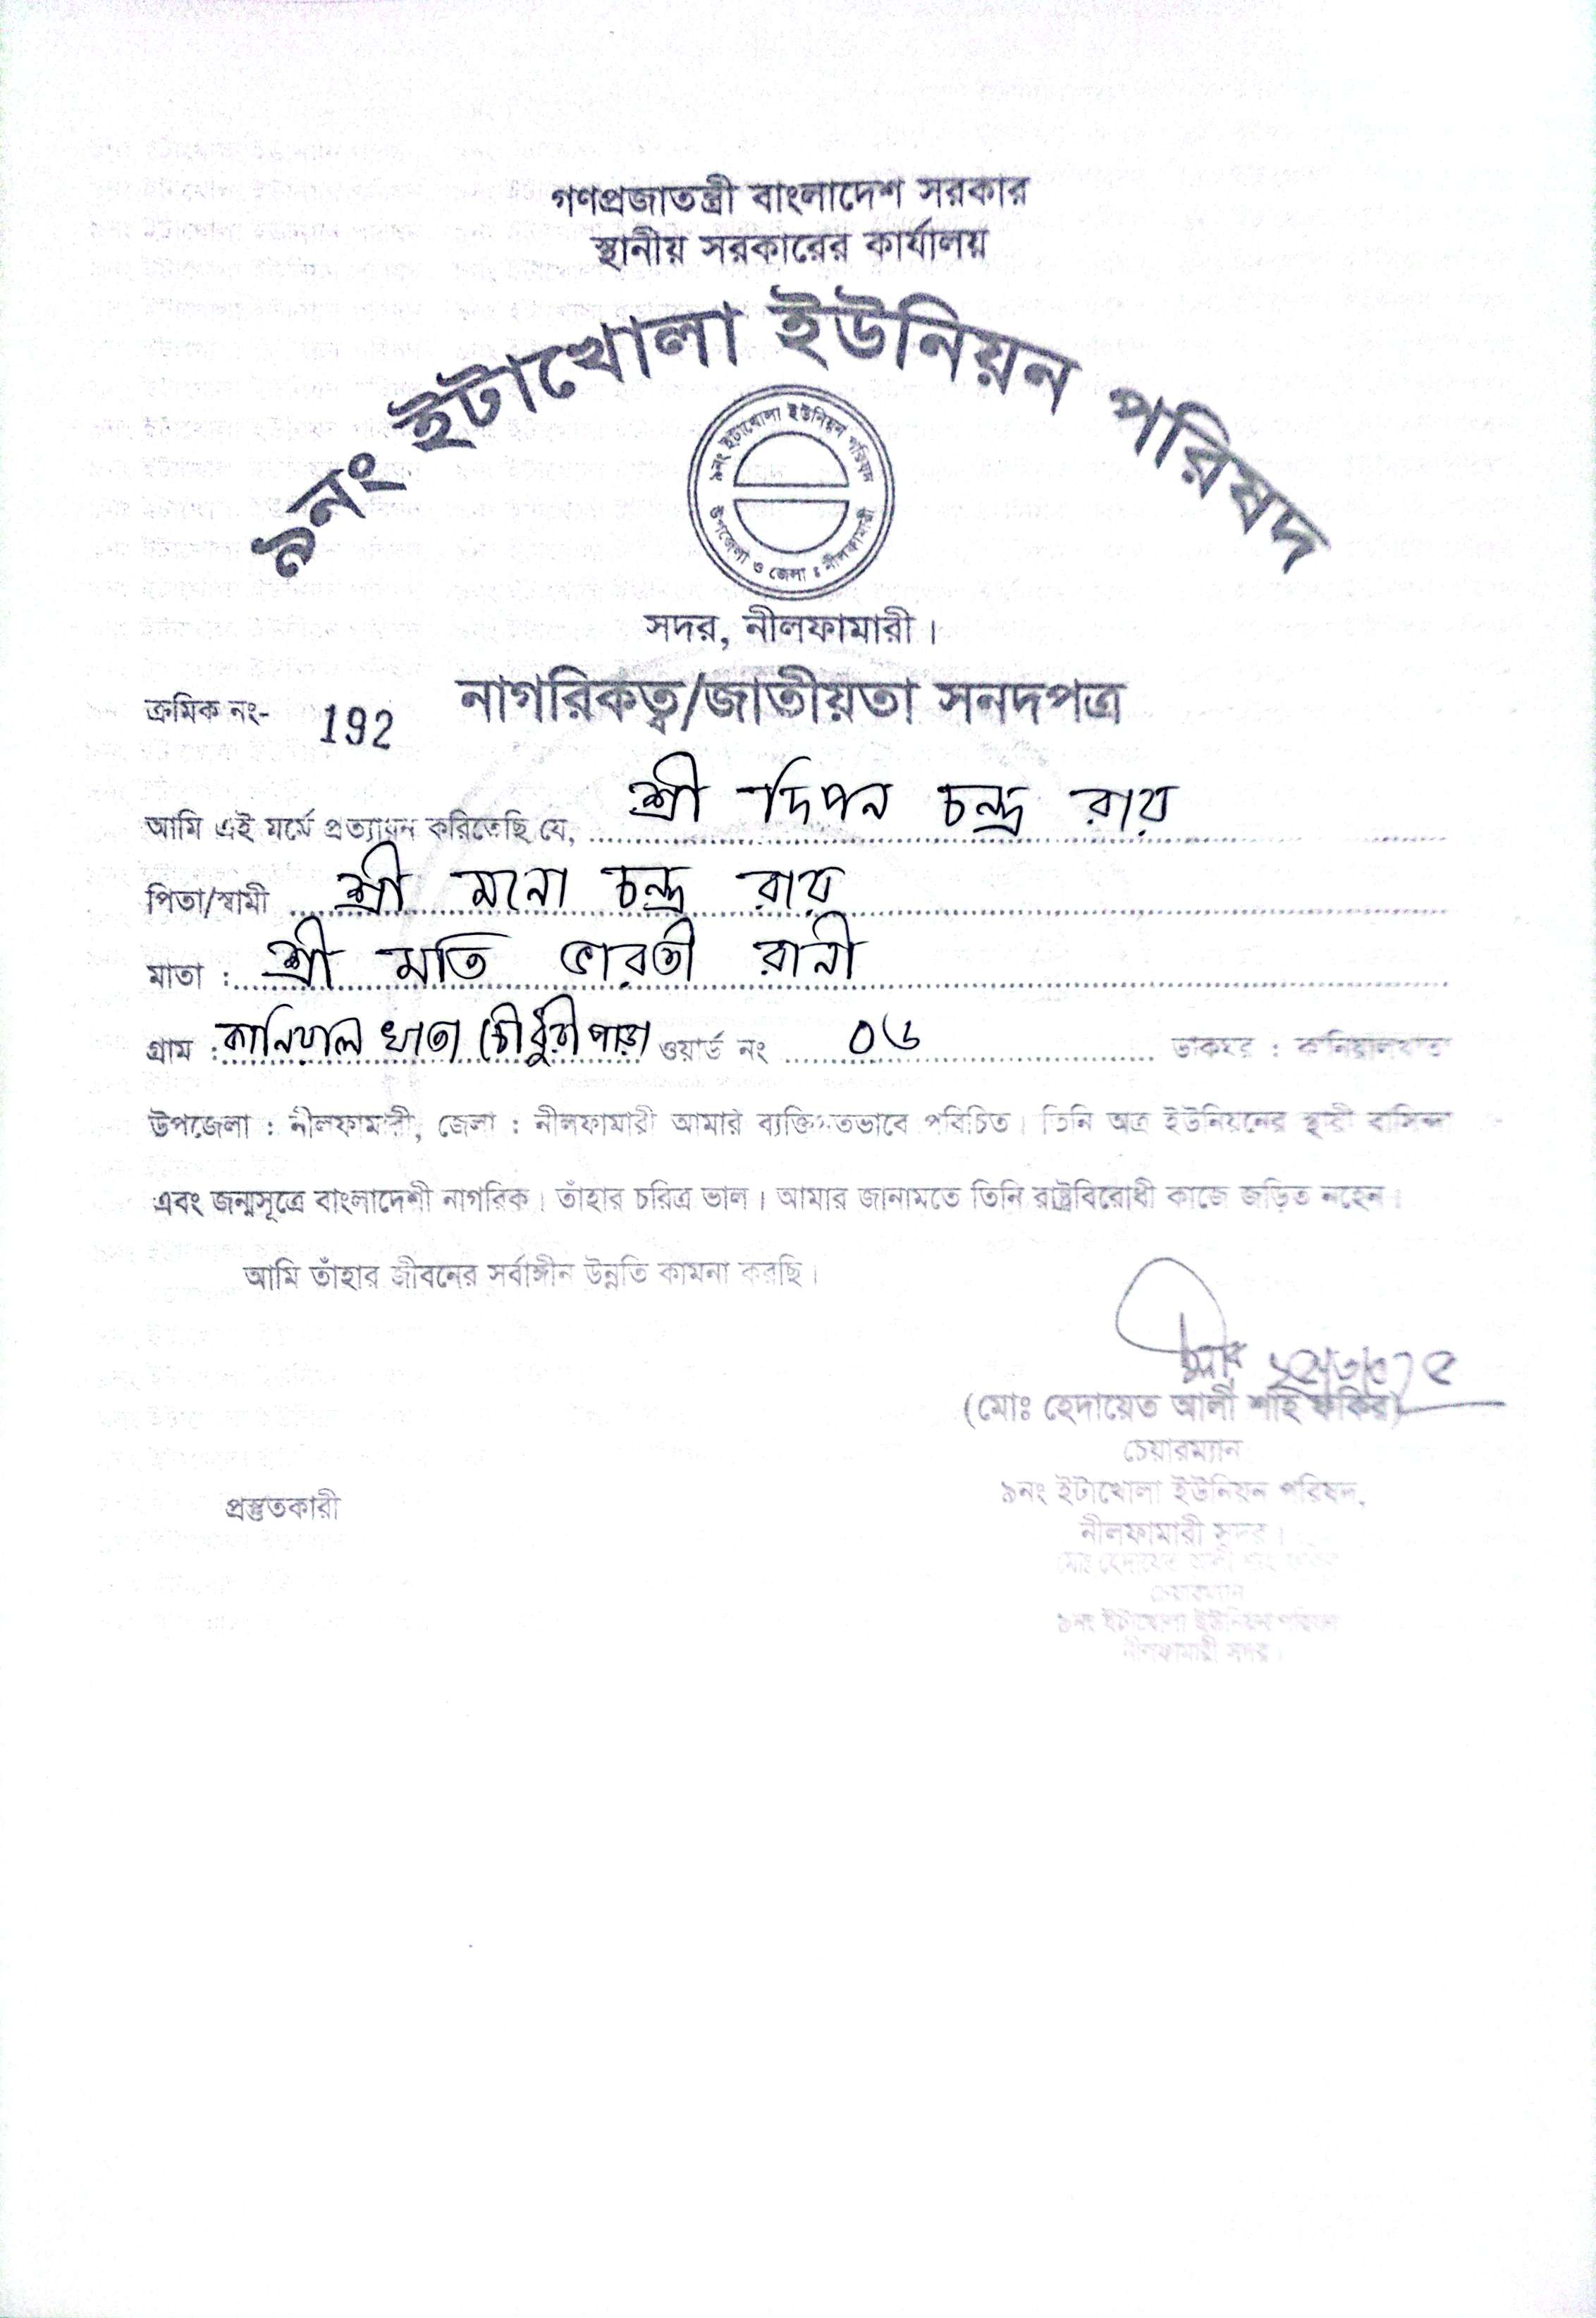 গণপ্রজাতন্ত্রী বাংলাদেশ সরকার
স্থানীয় সরকারের কার্যালয়
৯নং ইটাখোলা ইউনিয়ন পরিষদ
৯নং ইটাখোলা ইউনিয়ন পরিষদ
উপজেলা ও জেলা : নীলফামারী
সদর, নীলফামারী।
নাগরিকত্ব/জাতীয়তা সনদপত্র
ক্রমিক নং- 192
আমি এই মর্মে প্রত্যায়ন করিতেছি যে, শ্রী দিপন চন্দ্র রায়
পিতা/স্বামী শ্রী মনো চন্দ্র রায়
মাতা : শ্রী মতি ভারতী রানী
গ্রাম : কানিয়াল খাতা চৌধুরী পাড়া ওয়ার্ড নং ০৬ ডাকঘর : কানিয়ালখাতা
উপজেলা : নীলফামারী, জেলা : নীলফামারী আমার ব্যক্তিগতভাবে পরিচিত। তিনি অত্র ইউনিয়নের স্থায়ী বাসিন্দা
এবং জন্মসূত্রে বাংলাদেশী নাগরিক। তাঁহার চরিত্র ভাল। আমার জানামতে তিনি রাষ্ট্রবিরোধী কাজে জড়িত নহেন।
আমি তাঁহার জীবনের সর্বাঙ্গীন উন্নতি কামনা করছি।
(মোঃ হেদায়েত আলী শাহ ফকির)
চেয়ারম্যান
৯নং ইটাখোলা ইউনিয়ন পরিষদ,
নীলফামারী সদর।
প্রস্তুতকারী
মোঃ হেদায়েত আলী শাহ ফকির
চেয়ারম্যান
৯নং ইটাখোলা ইউনিয়ন পরিষদ
নীলফামারী সদর।